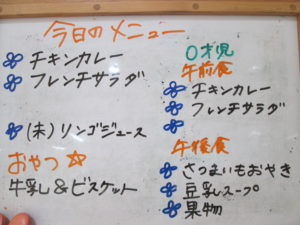 今日のメニュー
チキンカレー
フレンチサラダ
(未)リンゴジュース
おやつ
牛乳&ビスケット
0才児
午前食
チキンカレー
フレンチサラダ
午後食
さつまいもおやき
豆乳スープ
果物